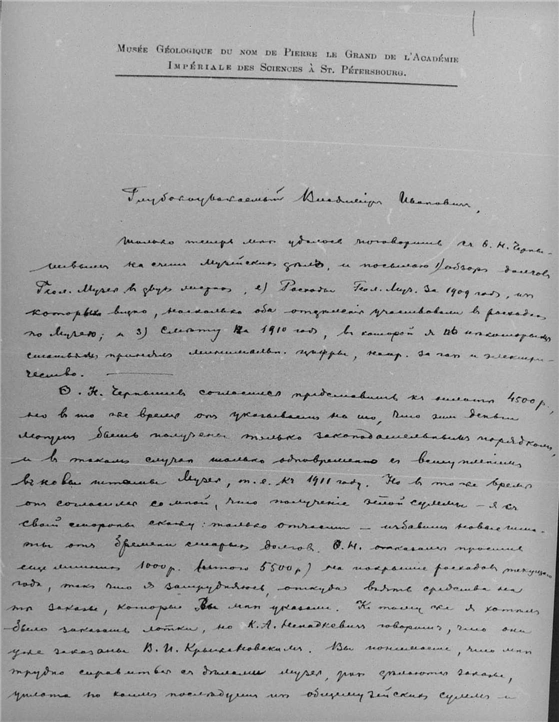 MUSÉE GÉOLOGIQUE DU NOM DE PIERRE LE GRAND DE L'ACADÉMIE
IMPÉRIALE DES SCIENCES À ST. PÉTERSBOURG.
Глубокоуважаемый Владиміръ Ивановичъ,
только теперь мнѣ удалось поговорить съ Ѳ. Н. Черны-
шевымъ на счетъ Музейскихъ дѣлъ, и посылаю 1) обзоръ долговъ
Геол. Музея въ двухъ 2) Расходы Геол. Муз. за 1909 годъ, изъ
которыхъ видно, насколько оба отдѣленія участвовали въ расходахъ
по Музею; и 3) Смѣту на 1910 годъ, въ которой я по нѣкоторымъ
статьямъ минимальн. цифры, напр. за газъ и электри-
чество.
Ѳ. Н. Чернышевъ согласился представить къ 4500 р.,
но въ то же время онъ указываетъ на то, что эти деньги
могутъ быть получены только законодательнымъ порядкомъ,
и въ такомъ случаѣ только одновременно съ вступленіемъ
въ новые штаты Музея, т. е. къ 1911 году. Но въ то же время
онъ согласился со мной, что полученіе этой суммы – я съ
своей стороны скажу: только отчасти – избавитъ новые шта-
ты отъ бремени старыхъ долговъ. Ѳ. Н.
1000 р. 5500 р.) на покрытіе расходовъ текущаго
года, такъ что я затрудняюсь, откуда взять средства на
тѣ заказы, которые Вы мнѣ указали. Къ тому же я хотѣлъ
было заказать лотки, но К. А. Ненадкевичъ говоритъ, что они
уже заказаны В. И. Крыжановскимъ. Вы понимаете, что мнѣ
трудно справиться съ дѣлами музея, разъ дѣлаются заказы,
уплата по коимъ послѣдуетъ изъ общемузейскихъ суммъ и